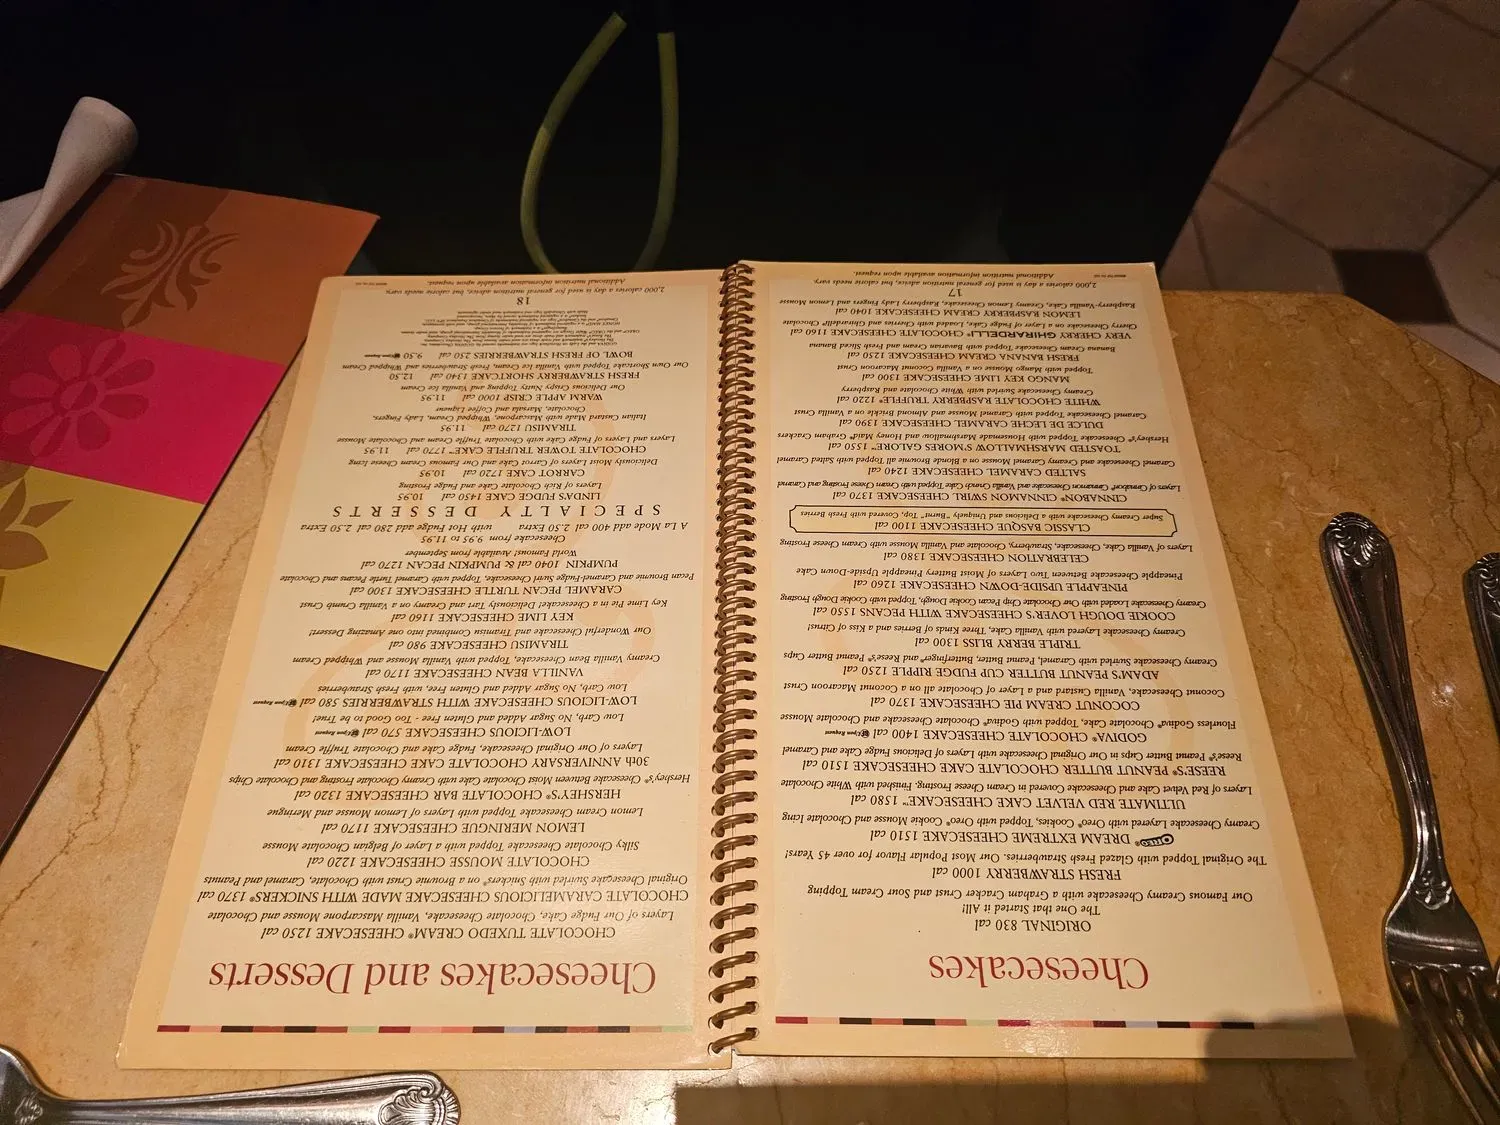 Cheesecakes
ORIGINAL 830 cal
The One that Started it All!
Our Famous Creamy Cheesecake with a Graham Cracker Crust and Sour Cream Topping
FRESH STRAWBERRY 1000 cal
The Original Topped with Glazed Fresh Strawberries. Our Most Popular Flavor for over 45 Years!
OREO® DREAM EXTREME CHEESECAKE 1510 cal
Creamy Cheesecake Layered with Oreo® Cookies, Topped with Oreo® Cookie Mousse and Chocolate Icing
ULTIMATE RED VELVET CAKE CHEESECAKE™ 1580 cal
Layers of Red Velvet Cake and Cheesecake Covered in Cream Cheese Frosting. Finished with White Chocolate
REESE'S® PEANUT BUTTER CHOCOLATE CAKE CHEESECAKE 1510 cal
Reese's® Peanut Butter Cups in Our Original Cheesecake with Layers of Delicious Fudge Cake and Caramel
GODIVA® CHOCOLATE CHEESECAKE 1400 cal Upon Request
Flourless Godiva® Chocolate Cake, Topped with Godiva® Chocolate Cheesecake and Chocolate Mousse
COCONUT CREAM PIE CHEESECAKE 1370 cal
Coconut Cheesecake, Vanilla Custard and a Layer of Chocolate all on a Coconut Macaroon Crust
ADAM'S PEANUT BUTTER CUP FUDGE RIPPLE 1250 cal
Creamy Cheesecake Swirled with Caramel, Peanut Butter, Butterfinger® and Reese's® Peanut Butter Cups
TRIPLE BERRY BLISS 1300 cal
Creamy Cheesecake Layered with Vanilla Cake, Three Kinds of Berries and a Kiss of Citrus!
COOKIE DOUGH LOVER'S CHEESECAKE WITH PECANS 1550 cal
Creamy Cheesecake Loaded with Our Chocolate Chip Pecan Cookie Dough, Topped with Cookie Dough Frosting
PINEAPPLE UPSIDE-DOWN CHEESECAKE 1260 cal
Pineapple Cheesecake Between Two Layers of Moist Buttery Pineapple Upside-Down Cake
CELEBRATION CHEESECAKE 1380 cal
Layers of Vanilla Cake, Cheesecake, Strawberry, Chocolate and Vanilla Mousse with Cream Cheese Frosting
CLASSIC BASQUE CHEESECAKE 1100 cal
Super Creamy Cheesecake with a Delicious and Uniquely "Burnt" Top, Covered with Fresh Berries
CINNABON® CINNAMON SWIRL CHEESECAKE 1370 cal
Layers of Cinnabon® Cinnamon Cheesecake and Vanilla Crunch Cake Topped with Cream Cheese Frosting and Caramel
SALTED CARAMEL CHEESECAKE 1240 cal
Caramel Cheesecake and Creamy Caramel Mousse on a Blonde Brownie all Topped with Salted Caramel
TOASTED MARSHMALLOW S'MORES GALORE™ 1550 cal
Hershey's® Cheesecake Topped with Housemade Marshmallow and Honey Maid® Graham Crackers
DULCE DE LECHE CARAMEL CHEESECAKE 1390 cal
Caramel Cheesecake Topped with Caramel Mousse and Almond Brickle on a Vanilla Crust
WHITE CHOCOLATE RASPBERRY TRUFFLE® 1220 cal
Creamy Cheesecake Swirled with White Chocolate and Raspberry
MANGO KEY LIME CHEESECAKE 1300 cal
Topped with Mango Mousse on a Vanilla Coconut Macaroon Crust
FRESH BANANA CREAM CHEESECAKE 1250 cal
Banana Cream Cheesecake Topped with Bavarian Cream and Fresh Sliced Banana
VERY CHERRY GHIRARDELLI® CHOCOLATE CHEESECAKE 1160 cal
Cherry Cheesecake on a Layer of Fudge Cake, Loaded with Cherries and Ghirardelli® Chocolate
LEMON RASPBERRY CREAM CHEESECAKE 1040 cal
Raspberry-Vanilla Cake, Creamy Lemon Cheesecake, Raspberry Lady Fingers and Lemon Mousse
17
2,000 calories a day is used for general nutrition advice, but calorie needs vary.
Additional nutrition information available upon request.
Cheesecakes and Desserts
CHOCOLATE TUXEDO CREAM® CHEESECAKE 1250 cal
Layers of Our Fudge Cake, Chocolate Cheesecake, Vanilla Mascarpone Mousse and Chocolate
CHOCOLATE CARAMELICIOUS CHEESECAKE MADE WITH SNICKERS® 1370 cal
Original Cheesecake Swirled with Snickers® on a Brownie Crust with Chocolate, Caramel and Peanuts
CHOCOLATE MOUSSE CHEESECAKE 1220 cal
Silky Chocolate Cheesecake Topped with a Layer of Belgian Chocolate Mousse
LEMON MERINGUE CHEESECAKE 1170 cal
Lemon Cream Cheesecake Topped with Layers of Lemon Mousse and Meringue
HERSHEY'S® CHOCOLATE BAR CHEESECAKE 1320 cal
Hershey's® Cheesecake Between Moist Chocolate Cake with Creamy Chocolate Frosting and Chocolate Chips
30th ANNIVERSARY CHOCOLATE CAKE CHEESECAKE 1310 cal
Layers of Our Original Cheesecake, Fudge Cake and Chocolate Truffle Cream
LOW-LICIOUS CHEESECAKE 570 cal Upon Request
Low Carb, No Sugar Added and Gluten Free - Too Good to be True!
LOW-LICIOUS CHEESECAKE WITH STRAWBERRIES 580 cal Upon Request
Low Carb, No Sugar Added and Gluten Free, with Fresh Strawberries
VANILLA BEAN CHEESECAKE 1170 cal
Creamy Vanilla Bean Cheesecake, Topped with Vanilla Mousse and Whipped Cream
TIRAMISU CHEESECAKE 980 cal
Our Wonderful Cheesecake and Tiramisu Combined into one Amazing Dessert!
KEY LIME CHEESECAKE 1160 cal
Key Lime Pie in a Cheesecake! Deliciously Tart and Creamy on a Vanilla Crumb Crust
CARAMEL PECAN TURTLE CHEESECAKE 1300 cal
Pecan Brownie and Caramel-Fudge Swirl Cheesecake, Topped with Caramel Turtle Pecans and Chocolate
PUMPKIN 1040 cal & PUMPKIN PECAN 1270
World Famous! Available from September
Cheesecake from 9.95 to 11.95
A La Mode add 400 cal 2.50 Extra with Hot Fudge add 280 cal 2.50 Extra
SPECIALTY DESSERTS
LINDA'S FUDGE CAKE 1450 cal 10.95
Layers of Rich Chocolate Cake and Fudge Frosting
CARROT CAKE 1720 cal 10.95
Deliciously Moist Layers of Carrot Cake and Our Famous Cream Cheese Icing
CHOCOLATE TOWER TRUFFLE CAKE™ 1770 cal 11.95
Layers and Layers of Fudge Cake with Chocolate Truffle Cream and Chocolate Mousse
TIRAMISU 1270 cal 11.95
Italian Custard Made with Mascarpone, Whipped Cream, Lady Fingers,
Chocolate, Marsala and Coffee Liqueur
WARM APPLE CRISP 1000 cal 11.95
Our Delicious Crispy Nutty Topping and Vanilla Ice Cream
FRESH STRAWBERRY SHORTCAKE 1340 cal 12.50
Our Own Shortcake Topped with Vanilla Ice Cream, Fresh Strawberries and Whipped Cream
BOWL OF FRESH STRAWBERRIES 250 cal Upon Request 9.50
18
2,000 calories a day is used for general nutrition advice, but calorie needs vary.
Additional nutrition information available upon request.